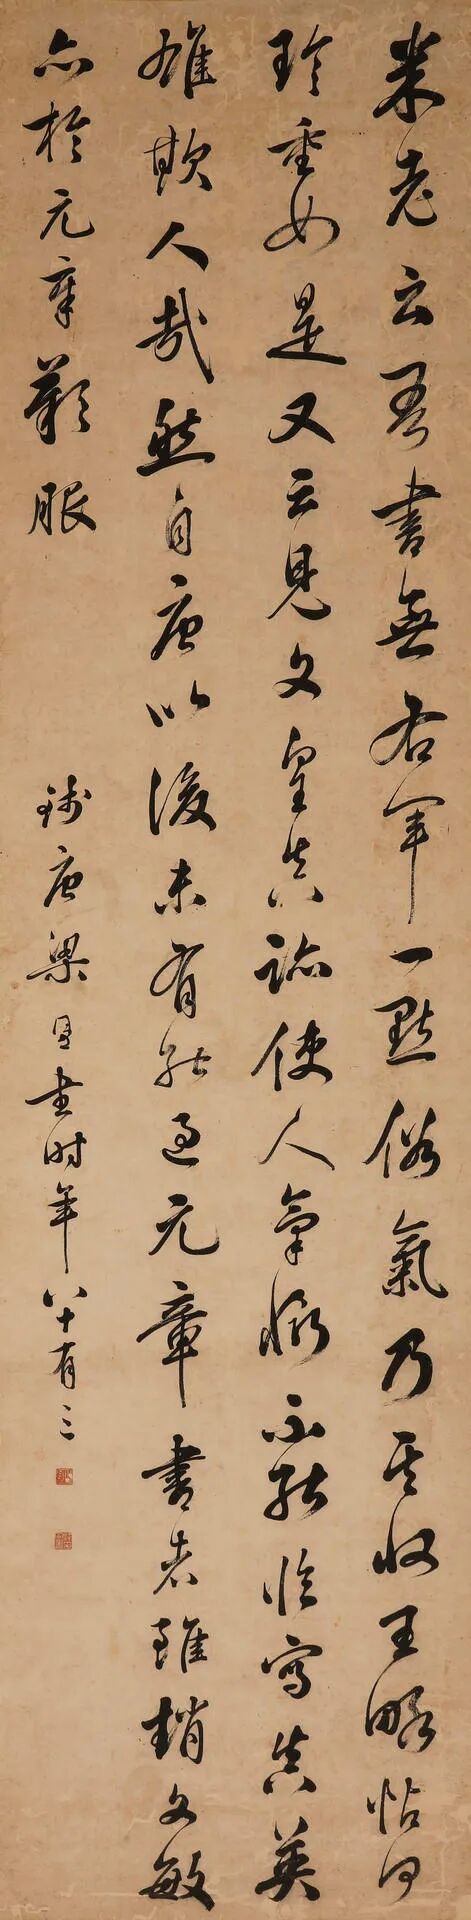 米老云吾書無右軍一點俗氣乃其收王略帖何
珍重如是又云見文皇真跡使人氣懾不能臨寫真英
雄欺人哉然自唐以後未有能過元章書者雖趙文敏
亦於元章歎服
錢唐梁同書時年八十有三